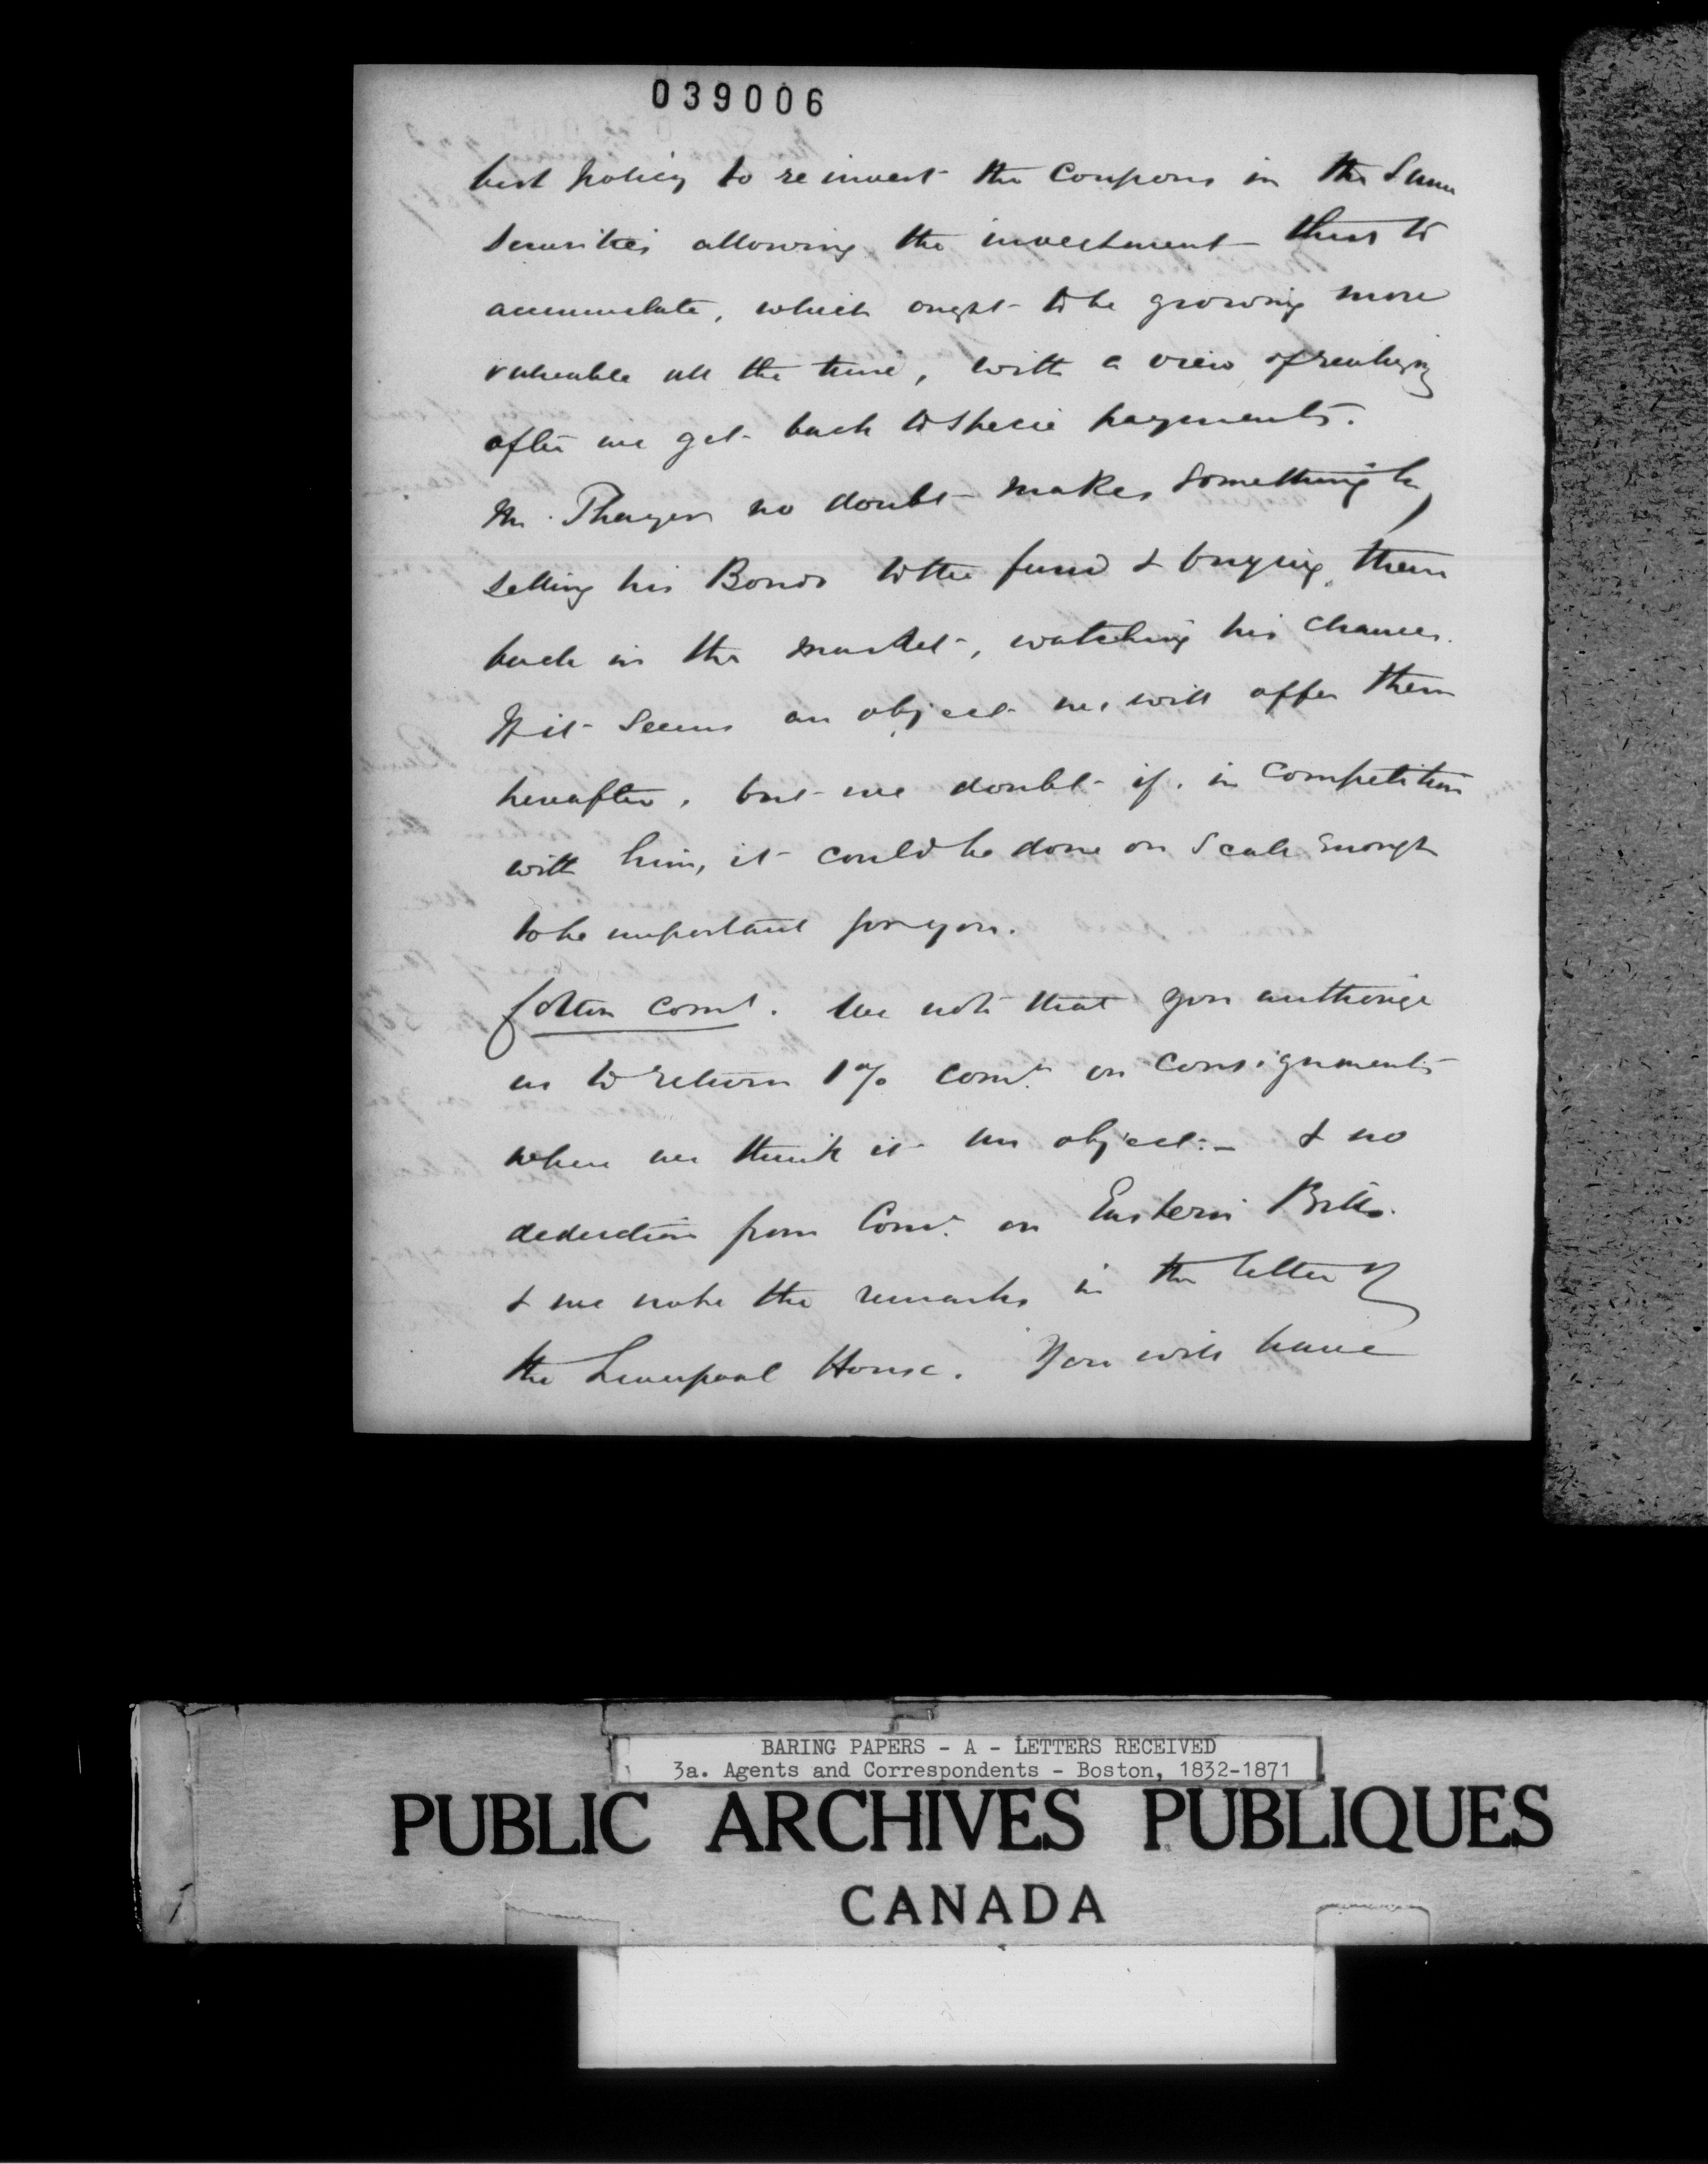 039006
best policy to reinvest the Coupons in the Same
Securities allowing the investment thus to
accumulate, which ought to be growing more
valuable all the time, with a view of realizing
after we get back to Specie payments.
Mr. Thayer no doubt makes something by
selling his Bonds to the fund & buying them
back in the market, watching his chances.
If it seems an object we will offer them
hereafter, but we doubt if, in Competition
with him, it could be done on Scale Enough
to be important for you.
Cotton comn. We note that you authorize
us to return 1% comn. on Consignments
when we think it an object:- & no
deduction from Comn. on Eastern Bills.
& we note the remarks in the letter of
the Liverpool House. You will have
BARING PAPERS - A - LETTERS RECEIVED
3a. Agents and Correspondents - Boston, 1832-1871
PUBLIC ARCHIVES PUBLIQUES
CANADA